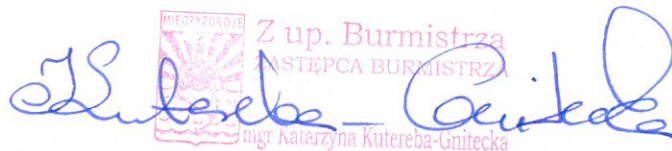 MIĘDZYZDROJE
Z up. Burmistrza
ZASTĘPCA BURMISTRZA
Kutereba-Gnitecka
mgr Katarzyna Kutereba-Gnitecka